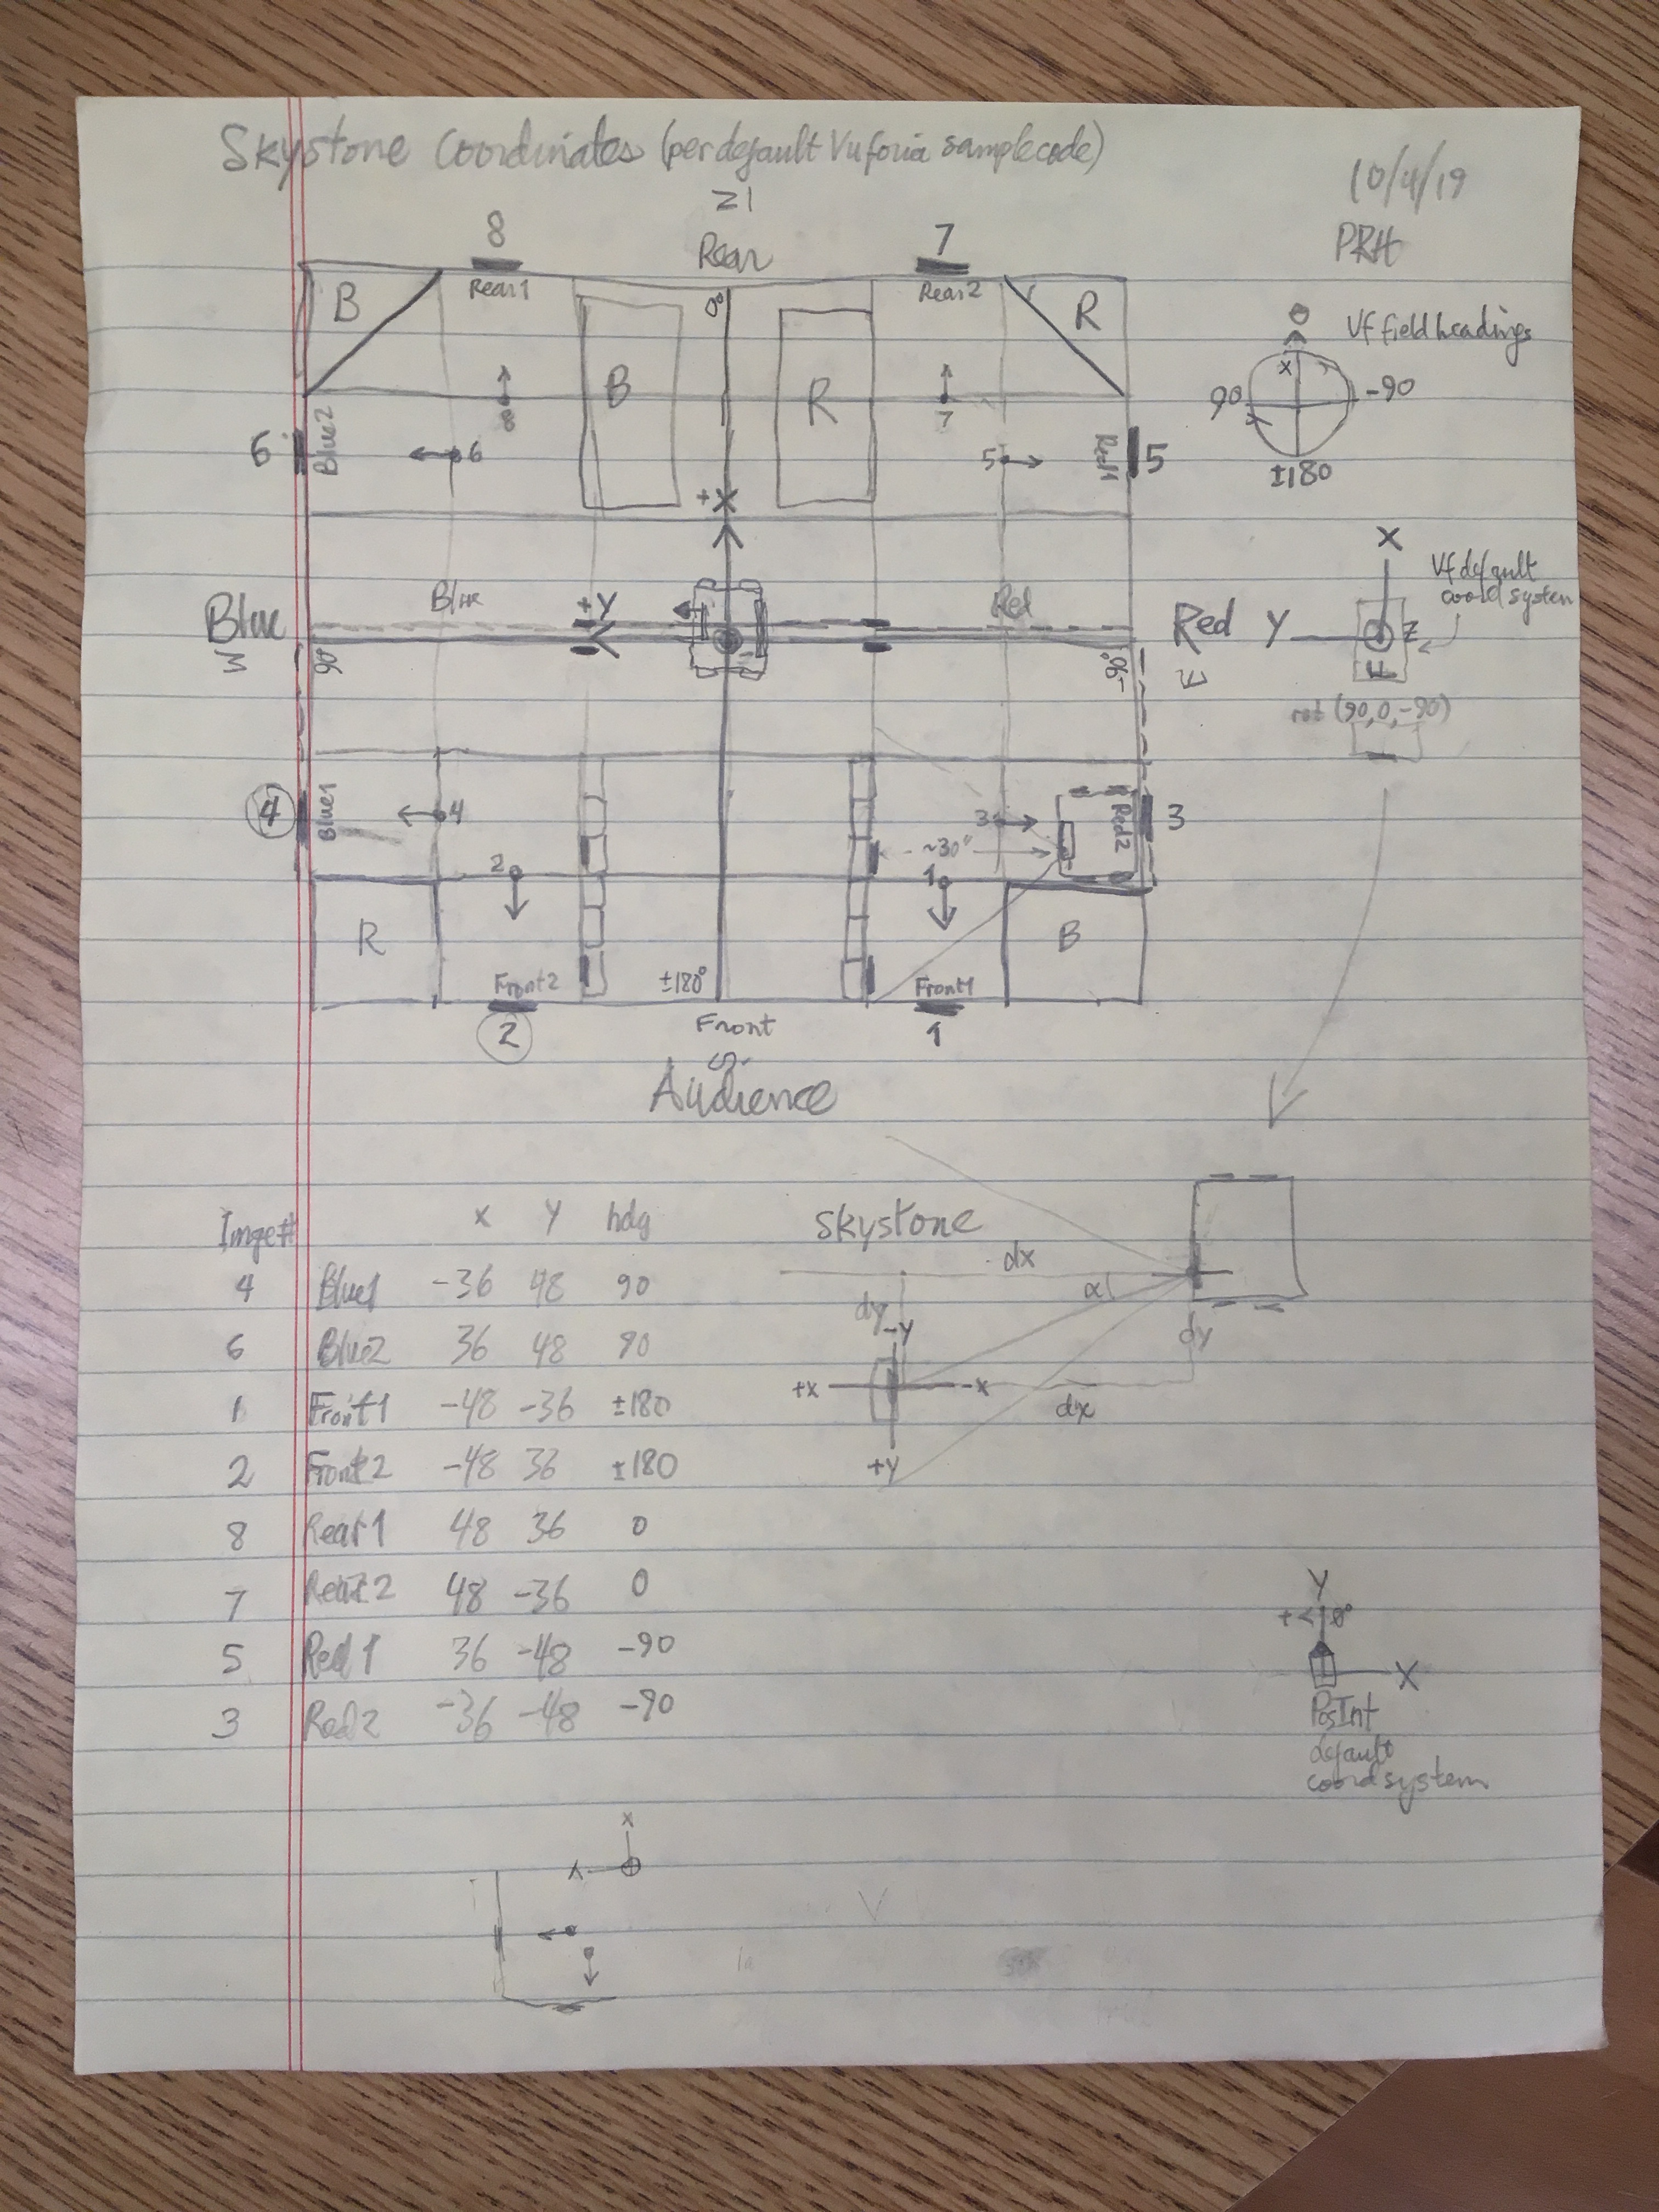 Skystone Coordinates (per default Vuforia sample code)
10/4/19
PRH
N
Rear
8
7
Rear1
Rear2
0°
B
R
B
R
8
7
6
Blue2
6
5
Red1
5
+X
0
Vf field headings
X
90
-90
±180
Blue
W
Blue
+Y
Red
Red
E
90°
-90°
X
Y
Z
Vf default
coord system
rot (90,0,-90)
4
Blue1
4
3
Red2
3
~30"
2
1
R
B
Front2
±180°
Front1
2
Front
1
S
Audience
Image# x y hdg
4 Blue1 -36 48 90
6 Blue2 36 48 90
1 Front1 -48 -36 ±180
2 Front2 -48 36 ±180
8 Rear1 48 36 0
7 Rear2 48 -36 0
5 Red1 36 -48 -90
3 Red2 -36 -48 -90
Skystone
dx
α
dy
-y
dy
+x
-x
dx
+y
Y
+
0°
X
PosInt
default
coord system
x